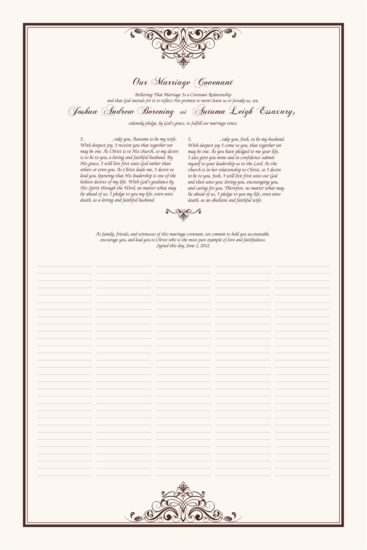 Our Marriage Covenant
Believing That Marriage Is a Covenant Relationship
and that God intends for it to reflect His promise to never leave us or forsake us, we,
Joshua Andrew Borening and Autumn Leigh Essaxary,
solemnly pledge, by God's grace, to fulfill our marriage vows.
I, , take you, Autumn to be my wife.
With deepest joy, I receive you that together we
may be one. As Christ is to His church, so my desire
is to be to you, a loving and faithful husband. By
His grace, I will love first unto God rather than
others or even you. As Christ leads me, I desire to
lead you, knowing that His leadership is one of the
holiest desires of my life. With God's guidance by
His Spirit through the Word, no matter what may
lie ahead of us, I pledge to you my life, even unto
death, as a loving and faithful husband.
I, , take you, Josh, to be my husband.
With deepest joy I come to you, that together we
may be one. As you have pledged to me your life,
I also give you mine and in confidence submit
myself to your leadership as to the Lord. As the
church is in her relationship to Christ, so I desire
to be to you. Josh, I will live first unto our God
and then unto you; loving you, encouraging you,
and caring for you. Therefore, no matter what may
lie ahead of us, I pledge to you my life, even unto
death, as an obedient and faithful wife.
As family, friends, and witnesses of this marriage covenant, we commit to hold you accountable,
encourage you, and lead you to Christ who is the most pure example of love and faithfulness.
Signed this day, June 2, 2012